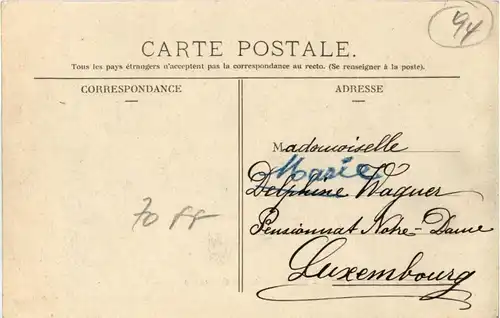 94
CARTE POSTALE.
Tous les pays étrangers n'acceptent pas la correspondance au recto. (Se renseigner à la poste).
CORRESPONDANCE
ADRESSE
Mademoiselle
Marie
Delphine Wagner
Pensionnat Notre-Dame
Luxembourg
70 FF